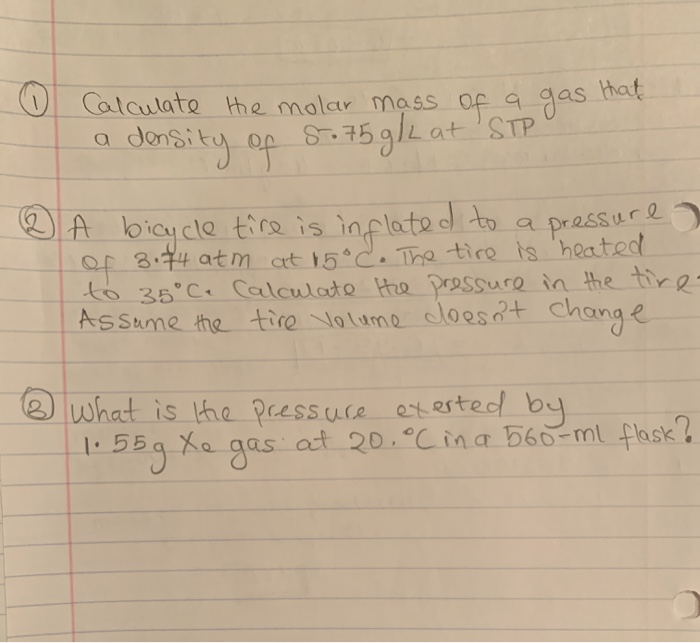 ① Calculate the molar mass of a gas that
a density of 5.75g/L at STP
② A bicycle tire is inflated to a pressure
of 3.74 atm at 15°C. The tire is heated
to 35°C. Calculate the pressure in the tire.
Assume the tire volume doesn't change
③ What is the pressure exerted by
1.55g Xe gas at 20.°C in a 560-ml flask?